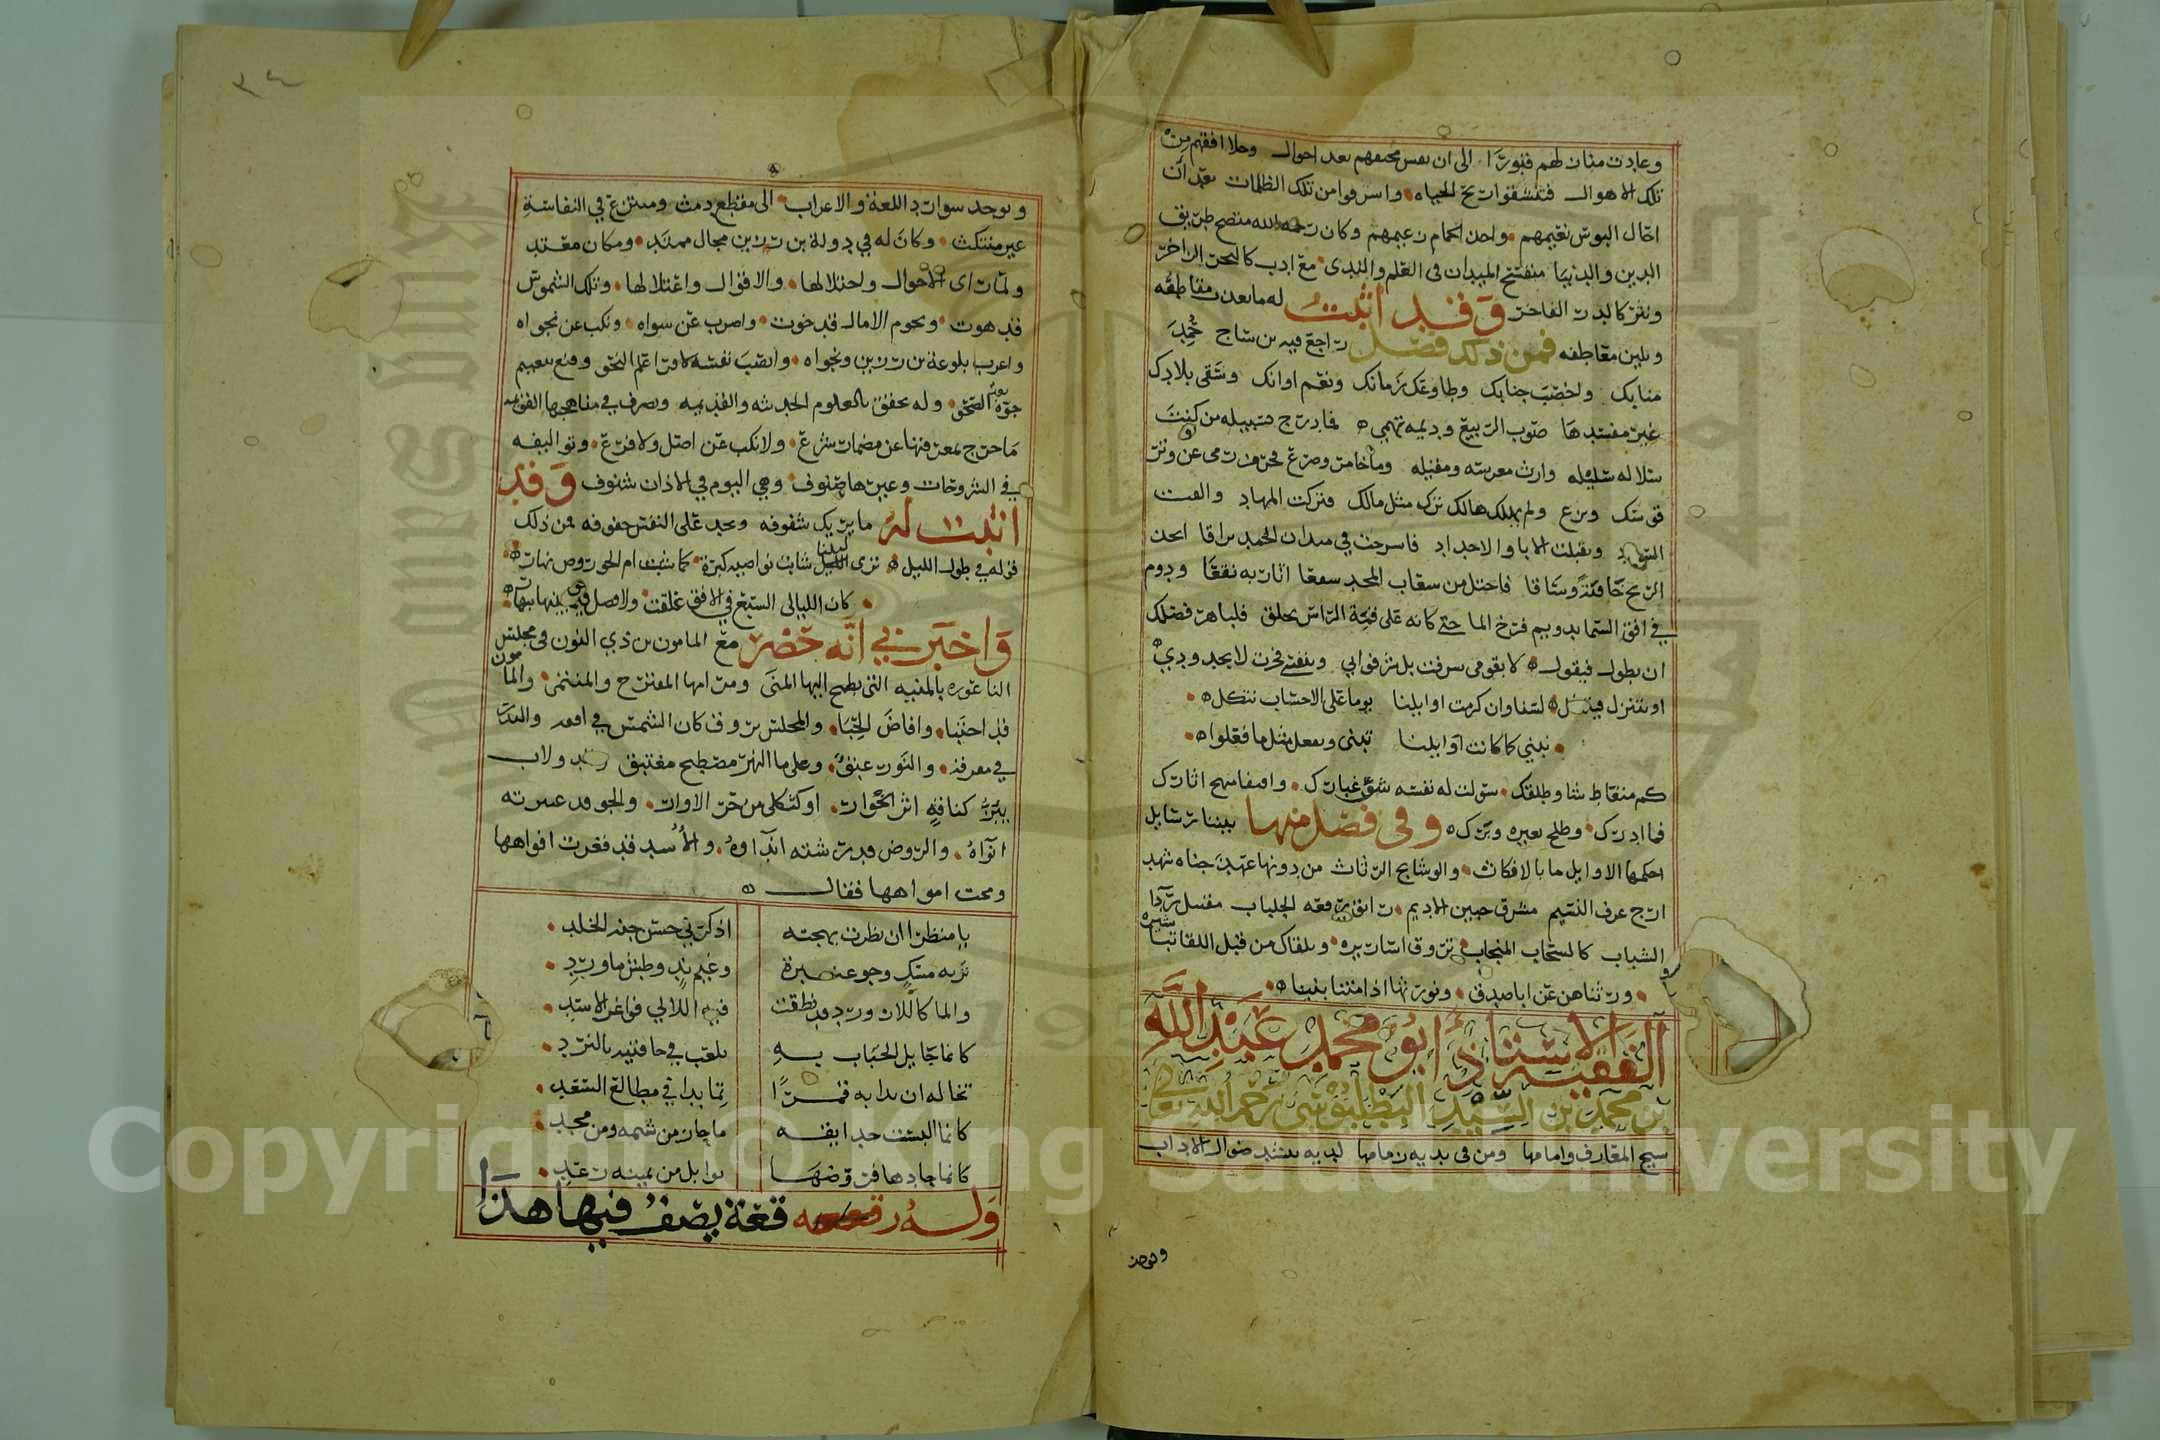 وعادت منازلهم قبورا الى ان نفس مخنقهم بعد احوال وخلا افقهم من
تلك الاهوال فتنشقوا ريح الحياه واسرفوا من تلك الظلمات بعد ان
احال البوس نعيمهم واحذ الحمام زعيمهم وكان رحمه الله منصح طريق
الدين والدنيا منفتح الميدان في العلم والندى مع ادب كالبحر الزاخر
ونثر كالدر الفاخر وقد اثبت له ما يعذب مقاطعه
ويلين معاطفه فمن ذلك فصل راجع فيه بن ساج حمد
منابك واخضب جنابك وطاوعك زمانك ونعم اوانك وسقى بلادك
غير مفسدها صوب الربيع وديمه تهمي فادرج سبيله من كنت
سلاله سليله وارث معرسه ومقيله وما خامر وضرع فخر من رمى عن وتر
قوسك ونزع ولم يهلك هالك ترك مثل مالك فتركت المهاد والفت
وتقبلت الابا والاجداد فاسرجت في ميدان الحمد براقا
الريح خافقة وساقا فاحتل من سقاب المجد سفعا اثار به نقعا ودوم
في افق السما يدويم فرخ الما حتى كانه على قمة الراس يحلق فلباهر فضلك
ان يطول فيقول لا بقومي سرفت بل شرفوابي وبنفسي فخرت لا بجدودي
او يتنزل فيتمثل لسنا وان كرمت اوايلنا يوما على الاحساب نتكل
نبني كما كانت اوايلنا تبني ونفعل مثل ما فعلوا
كم منعاط شا وطلقك سولت له نفسه شق غبارك واقتفا منهج اثارك
فما ادرك وطلح بعيره وبرك وفى فصل منها بيننا رسايل
احكمها الاوايل ما بالافكاث والوشايج الرثاث من دونها عهد جناه شهد
ارج عرف النسيم مشرق جبين الاديم رايق رقعه الجلباب مقتبل رداء
الشباب كالسحاب المنجاب تروق اساريره وتلقاك من قبل اللقا تباشيره
ورثناهن عن ابا صدق ونورثها اذا متنا بنينا
الفقيه الاستاذ ابو محمد عبد الله
بن محمد بن السيد البطليوسي رحمه الله تعالى
سيخ المعارف وامامها ومن في يديه زمامها لديه ينشد ضوال الاداب
وتوجد
٣٤
وتوجد سوارد اللغة والاعراب الى مقطع دمث ومنزع في النفاسة
غير منتكث وكان له في دولة بن رزين مجال ممتد ومكان معتد
ولما راى الاحوال واختلالها والاقوال واعتلالها وتلك الشموس
قد هوت ونجوم الامال قد خوت واضرب عن سواه ونكب عن نجواه
واعرب بلوعة بن رزين وجواه وانصب نفسه لاقرا علم النحو وقنع بتغييم
جوه بعد الصحو وله تحقق بالعلوم الحديثه والقديمه وتصرف في مناهجها القويمه
ما خرج بمعرفتها عن مضمار شرع ولا نكب عن اصل ولا فرع وتواليفه
في الشروحات وغيرها صنوف وهي اليوم في الاذان شنوف وقد
اثبت له ما يريك شفوفه وتجد على النفس حفوفه فمن ذلك
قوله في طول الليل ترى ليلنا شابت نواصيه كبرة كما شبت ام الجو روض نهار
كان الليالي السبع في الافق علقت ولا فصل فيما بينها بنهار
واخبرني انه حضر مع المامون بن ذي النون في مجلس
الناعوره بالمنيه التي يطمح اليها المنى ومرامها المقترح والمتمنى والمامون
قد احتبا وافاض الحبا والمجلس يروق كان الشمس في افقه والبدر
في مفرقه والنور عبق وعلى ما النهر مصطبح مغتبق ولاب
يئن كناقة اثر الحوار او كثكلى من حر الاوار والجو قد عنبرته
انواه والروض قد رشته انداوه والاسد قد فغرت افواهها
ومجت امواهها فقال
يا منظرا ان نظرت بهجته اذكرني حسن جنه الخلد
تربه مسك وجو عنبرة وغيم ند وطش ما ورد
والما كاللازورد قد نظمت فيه اللالي فواغر الاسد
كانما جايل الحباب به يلعب في حافتيه بالنرد
تخاله ان بدا به قمرا تما بدا في مطالع السعد
كانما البست حدايقه ما حاز من شيمه ومن مجد
كانما جادها فروضها بوابل من يمينه رعد
وله رقعه قعة يصف فيها هذا